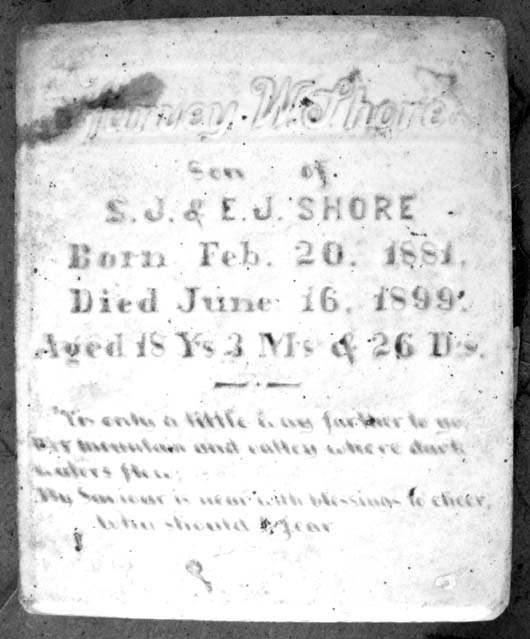 Harvey W. Shore
Son of
S. J. & E. J. SHORE
Born Feb. 20. 1881.
Died June 16. 1899.
Aged 18 Ys 3 Ms & 26 Ds.
'Tis only a little way farther to go,
O'er mountain and valley where dark
waters flow;
My Saviour is near with blessings to cheer,
Why should I fear